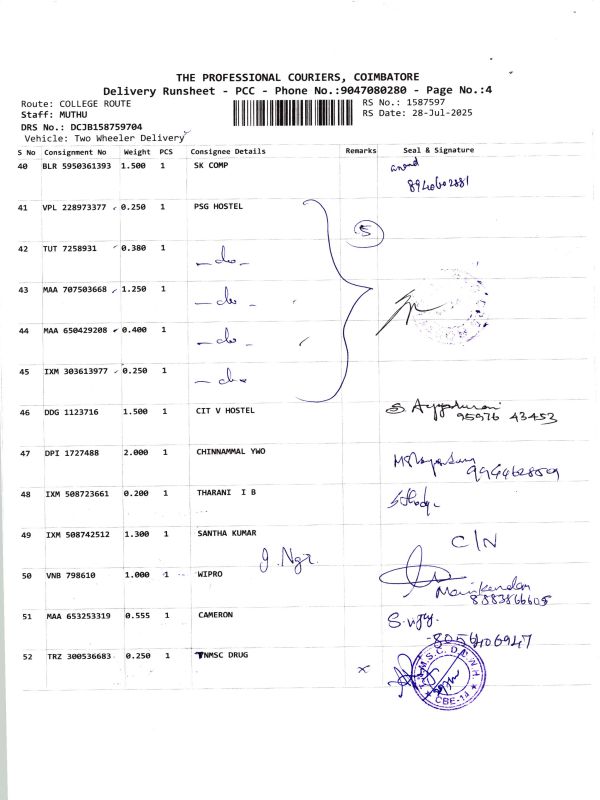 THE PROFESSIONAL COURIERS, COIMBATORE
Delivery Runsheet - PCC - Phone No.:9047080280 - Page No.:4
Route: COLLEGE ROUTE RS No.: 1587597
Staff: MUTHU RS Date: 28-Jul-2025
DRS No.: DCJB158759704
Vehicle: Two Wheeler Delivery
S No Consignment No Weight PCS Consignee Details Remarks Seal & Signature
40 BLR 5950361393 1.500 1 SK COMP anand
8940602881
41 VPL 228973377 0.250 1 PSG HOSTEL
5
42 TUT 7258931 0.380 1 - do -
43 MAA 707503668 1.250 1 - do -
44 MAA 650429208 0.400 1 - do -
45 IXM 303613977 0.250 1 - do -
46 DDG 1123716 1.500 1 CIT V HOSTEL
95976 43453
47 DPI 1727488 2.000 1 CHINNAMMAL YWO
9944628509
48 IXM 508723661 0.200 1 THARANI I B
49 IXM 508742512 1.300 1 SANTHA KUMAR C/N
g. Ngr.
50 VNB 798610 1.000 1 WIPRO Manikandan
8883866605
51 MAA 653253319 0.555 1 CAMERON S. vijay.
-8056406947
52 TRZ 300536683 0.250 1 TNMSC DRUG x
T.N.M.S.C. D.W.H.
CBE-14